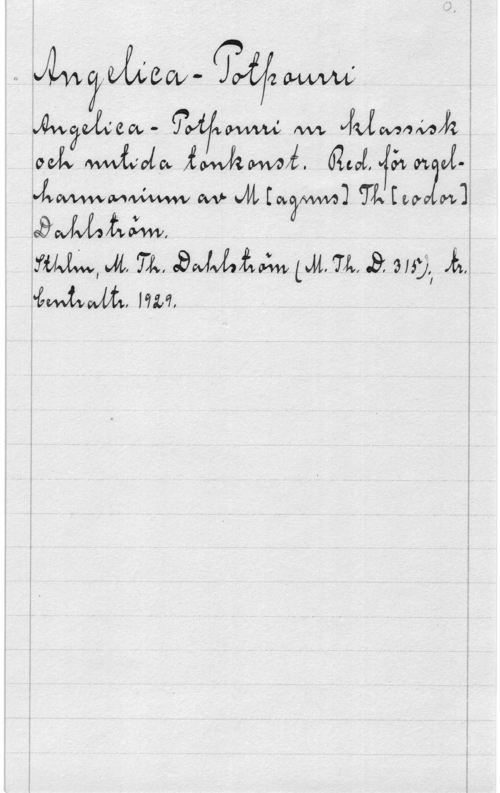 O.
Angelica-Potpourri
Angelica - Potpourri ur klassisk
och nutida tonkonst. Red. för orgel-
harmonium av M[agnus] Th[eodor]
Dahlström.
Sthlm, M. Th. Dahlström (M. Th. D. 315); tr.
Centraltr. 1929.